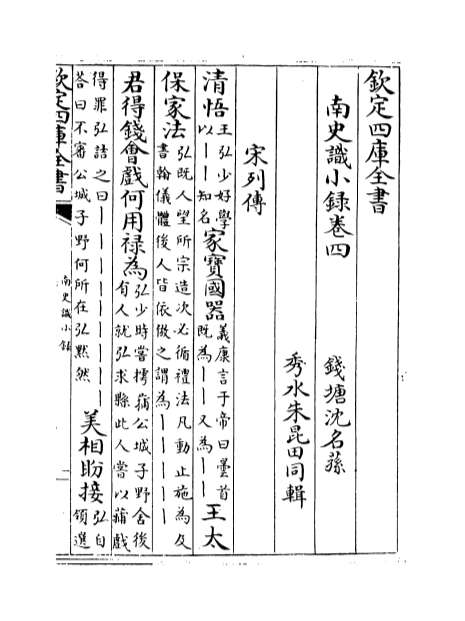 欽定四庫全書
南史識小録卷四
錢塘沈名蓀
秀水朱昆田同輯
宋列傳
清悟王弘少好學以一一知名家寶國器義康言于帝曰曇首既為一一又為一一王太
保家法弘既人望所宗造次必循禮法凡動止施為及書翰儀體後人皆依倣之謂為一一一一一
君得錢會戲何用禄為弘少時嘗摴蒱公城子野舍後有人就弘求縣此人嘗以蒱戲
得罪弘詰之曰一一一一一一一一一答曰不審公城子野何所在弘黙然美相盼接弘自領選
欽定四庫全書
南史識小録
一